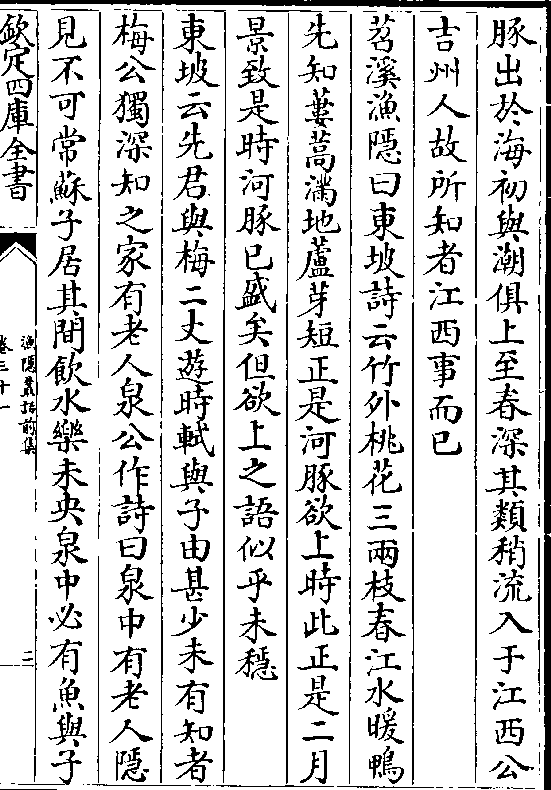 豚出於海初與潮俱上至春深其類稍流入于江西公
吉州人故所知者江西事而已
苕溪漁隱曰東坡詩云竹外桃花三兩枝春江水暖鴨
先知蔞蒿滿地蘆芽短正是河豚欲上時此正是二月
景致是時河豚已盛矣但欲上之語似乎未穩
東坡云先君與梅二丈遊時軾與子由甚少未有知者
梅公獨深知之家有老人泉公作詩曰泉中有老人隱
見不可常蘇子居其間飲水樂未央泉中必有魚與子
欽定四庫全書
漁隱叢話前集
卷三十一
三